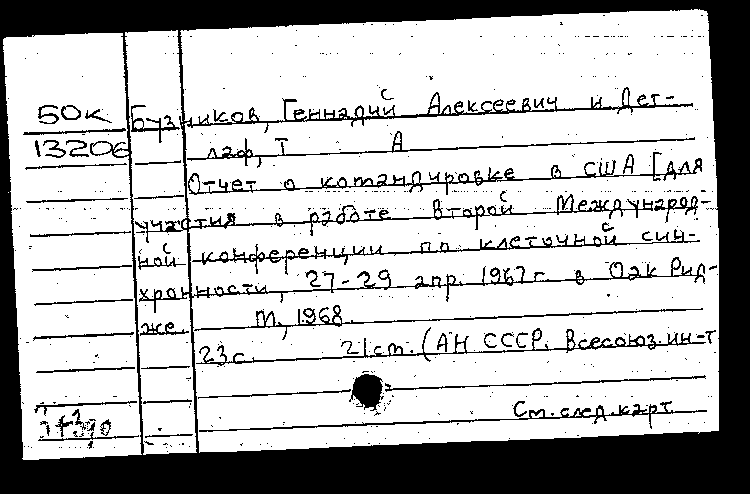 50к Бузников, Геннадий Алексеевич и Дет-
13206 лаф, Т А
Отчет о командировке в США [для
участия в работе второй Международ-
ной конференции по клеточной син-
хронности, 27-29 апр. 1967 г. в Оак Рид-
же. М., 1968.
23 с. 21 см. (АН СССР. Всесоюз. ин-т
См. след. карт.